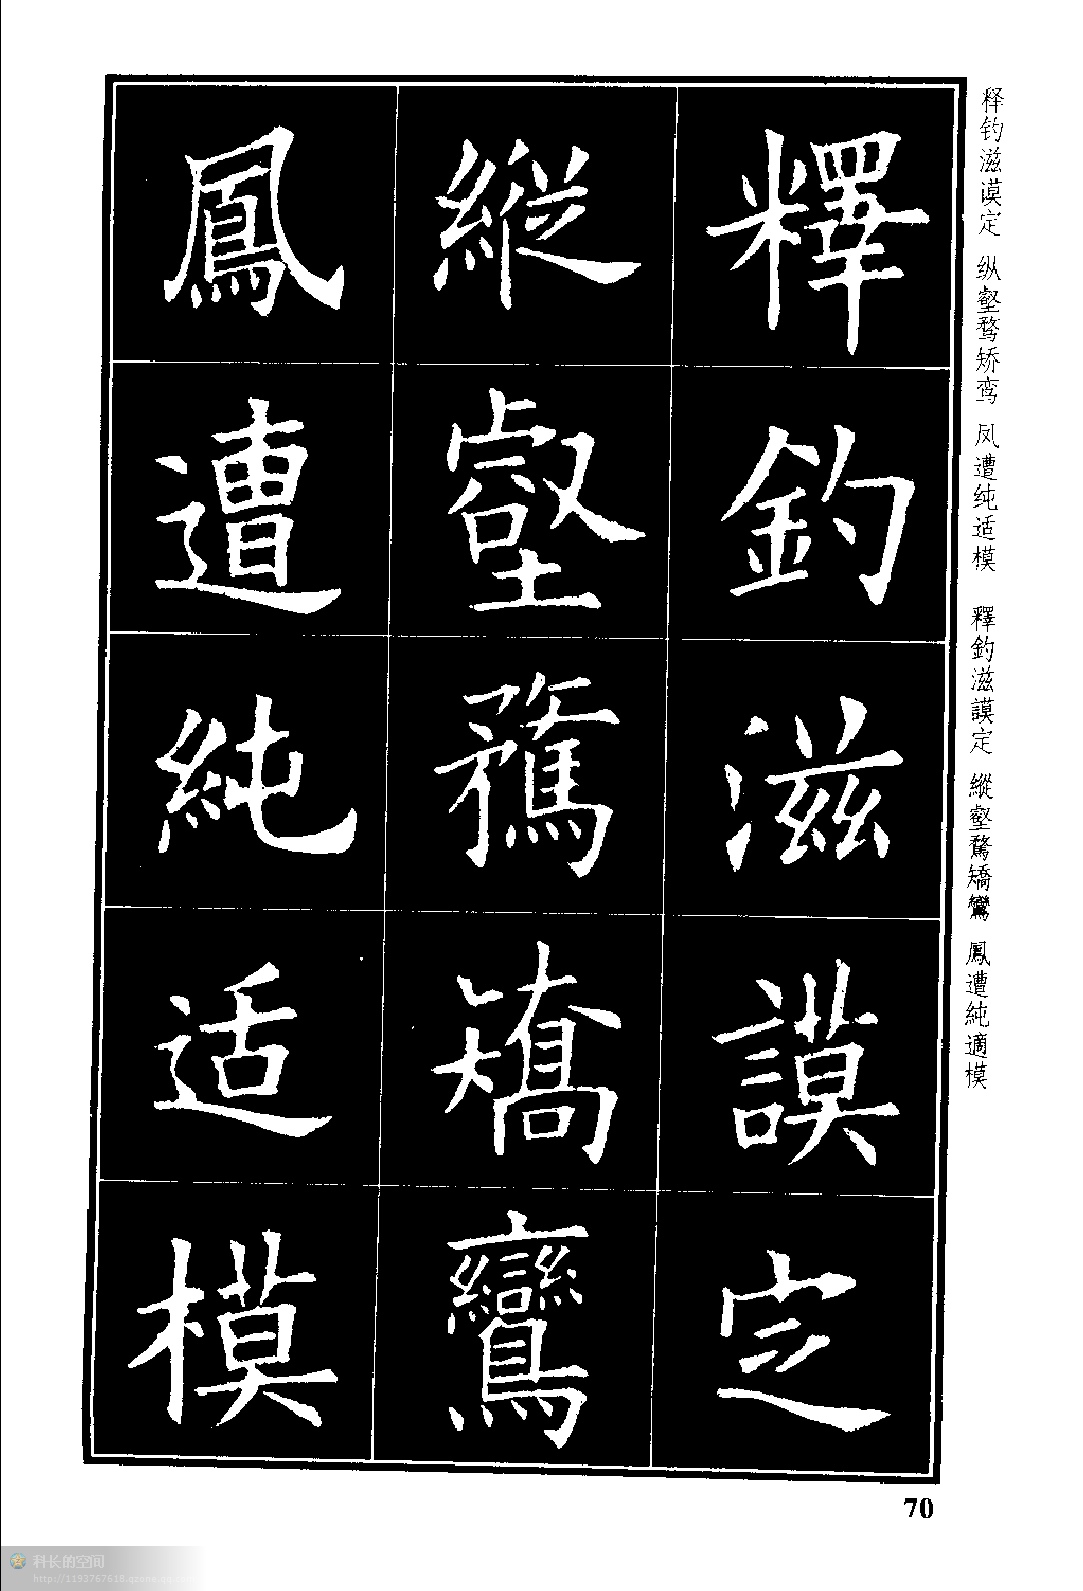 释钓滋谟定 纵壑骛矫鸾 凤遭纯适模 釋釣滋謨定 縱壑騖矯鸞 鳳遭純適模
釋釣滋謨定
縱壑騖矯鸞
鳳遭純适模
70
科长的空间
http://1193767618.qzone.qq.com